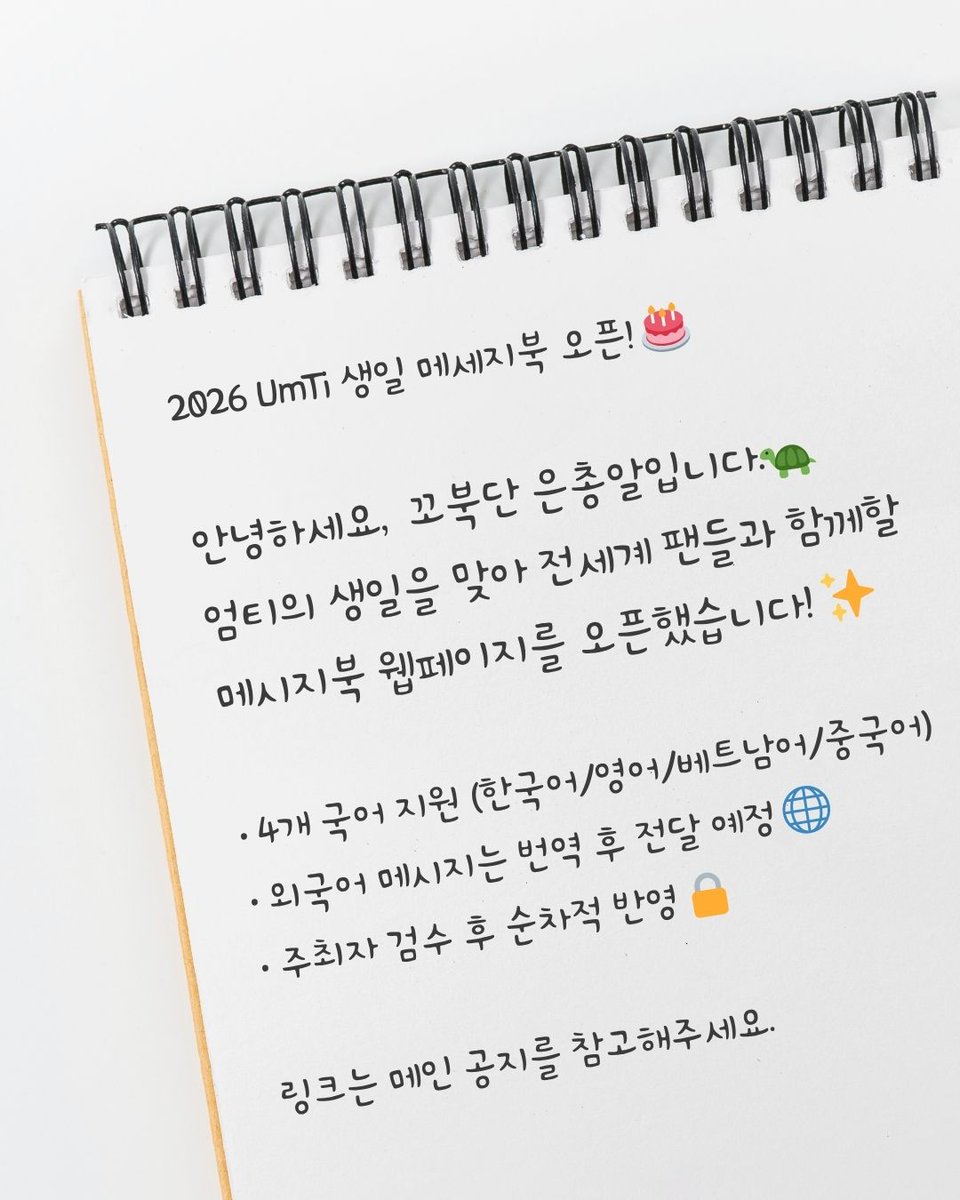 2026 UmTi 생일 메세지북 오픈!🎂
안녕하세요, 꼬북단 은총알입니다.🐢
엄티의 생일을 맞아 전세계 팬들과 함께할
메시지북 웹페이지를 오픈했습니다!✨
· 4개 국어 지원 (한국어/영어/베트남어/중국어)
· 외국어 메시지는 번역 후 전달 예정🌐
· 주최자 검수 후 순차적 반영🔒
링크는 메인 공지를 참고해주세요.